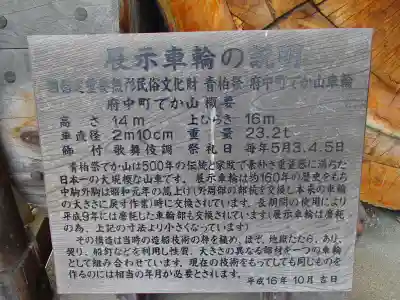 展示車輪の説明
国指定重要無形民俗文化財 青柏祭 府中町でか山車輪
府中町でか山概要
高さ 14m 上ひらき 16m
車直径 2m10cm 重量 23.2t
飾付 歌舞伎調 祭礼日 毎年5月3.4.5日
青柏祭でか山は500年の伝統と家 で素朴さ重圧感に満ちた
日本一の大規模な山車です。展示車輪は約160年の歴史をもち
中駒外駒は昭和元年の嵩上げ(外周部の部桄を交換し本来の車輪
の大きさに戻す作業)時に交換されています。長期間の使用により
平成9年には磨耗した車輪部も交換されています(展示車輪は磨耗
の為、上記の寸法より小さくなっています)
その構造は当時の造船技術の粋を極め、ほぞ、地獄たたら、あり、
契り、船釘などを利用し性質、大きさの異なる部材を一つの車輪
として組み合わせています。現在の技術をもってしても同じものを
作るのには相当の年月が必要とされます。
平成16年10月吉日